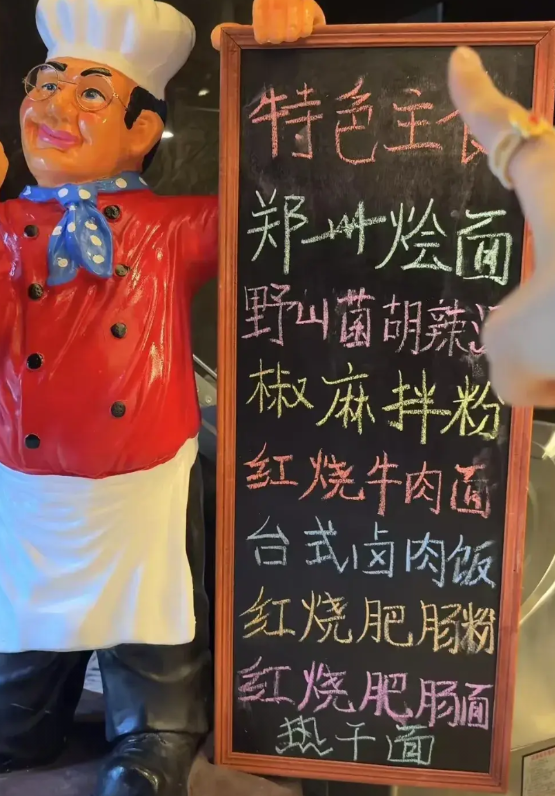 特色主食
郑州烩面
野山菌胡辣汤
椒麻拌粉
红烧牛肉面
台式卤肉饭
红烧肥肠粉
红烧肥肠面
热干面